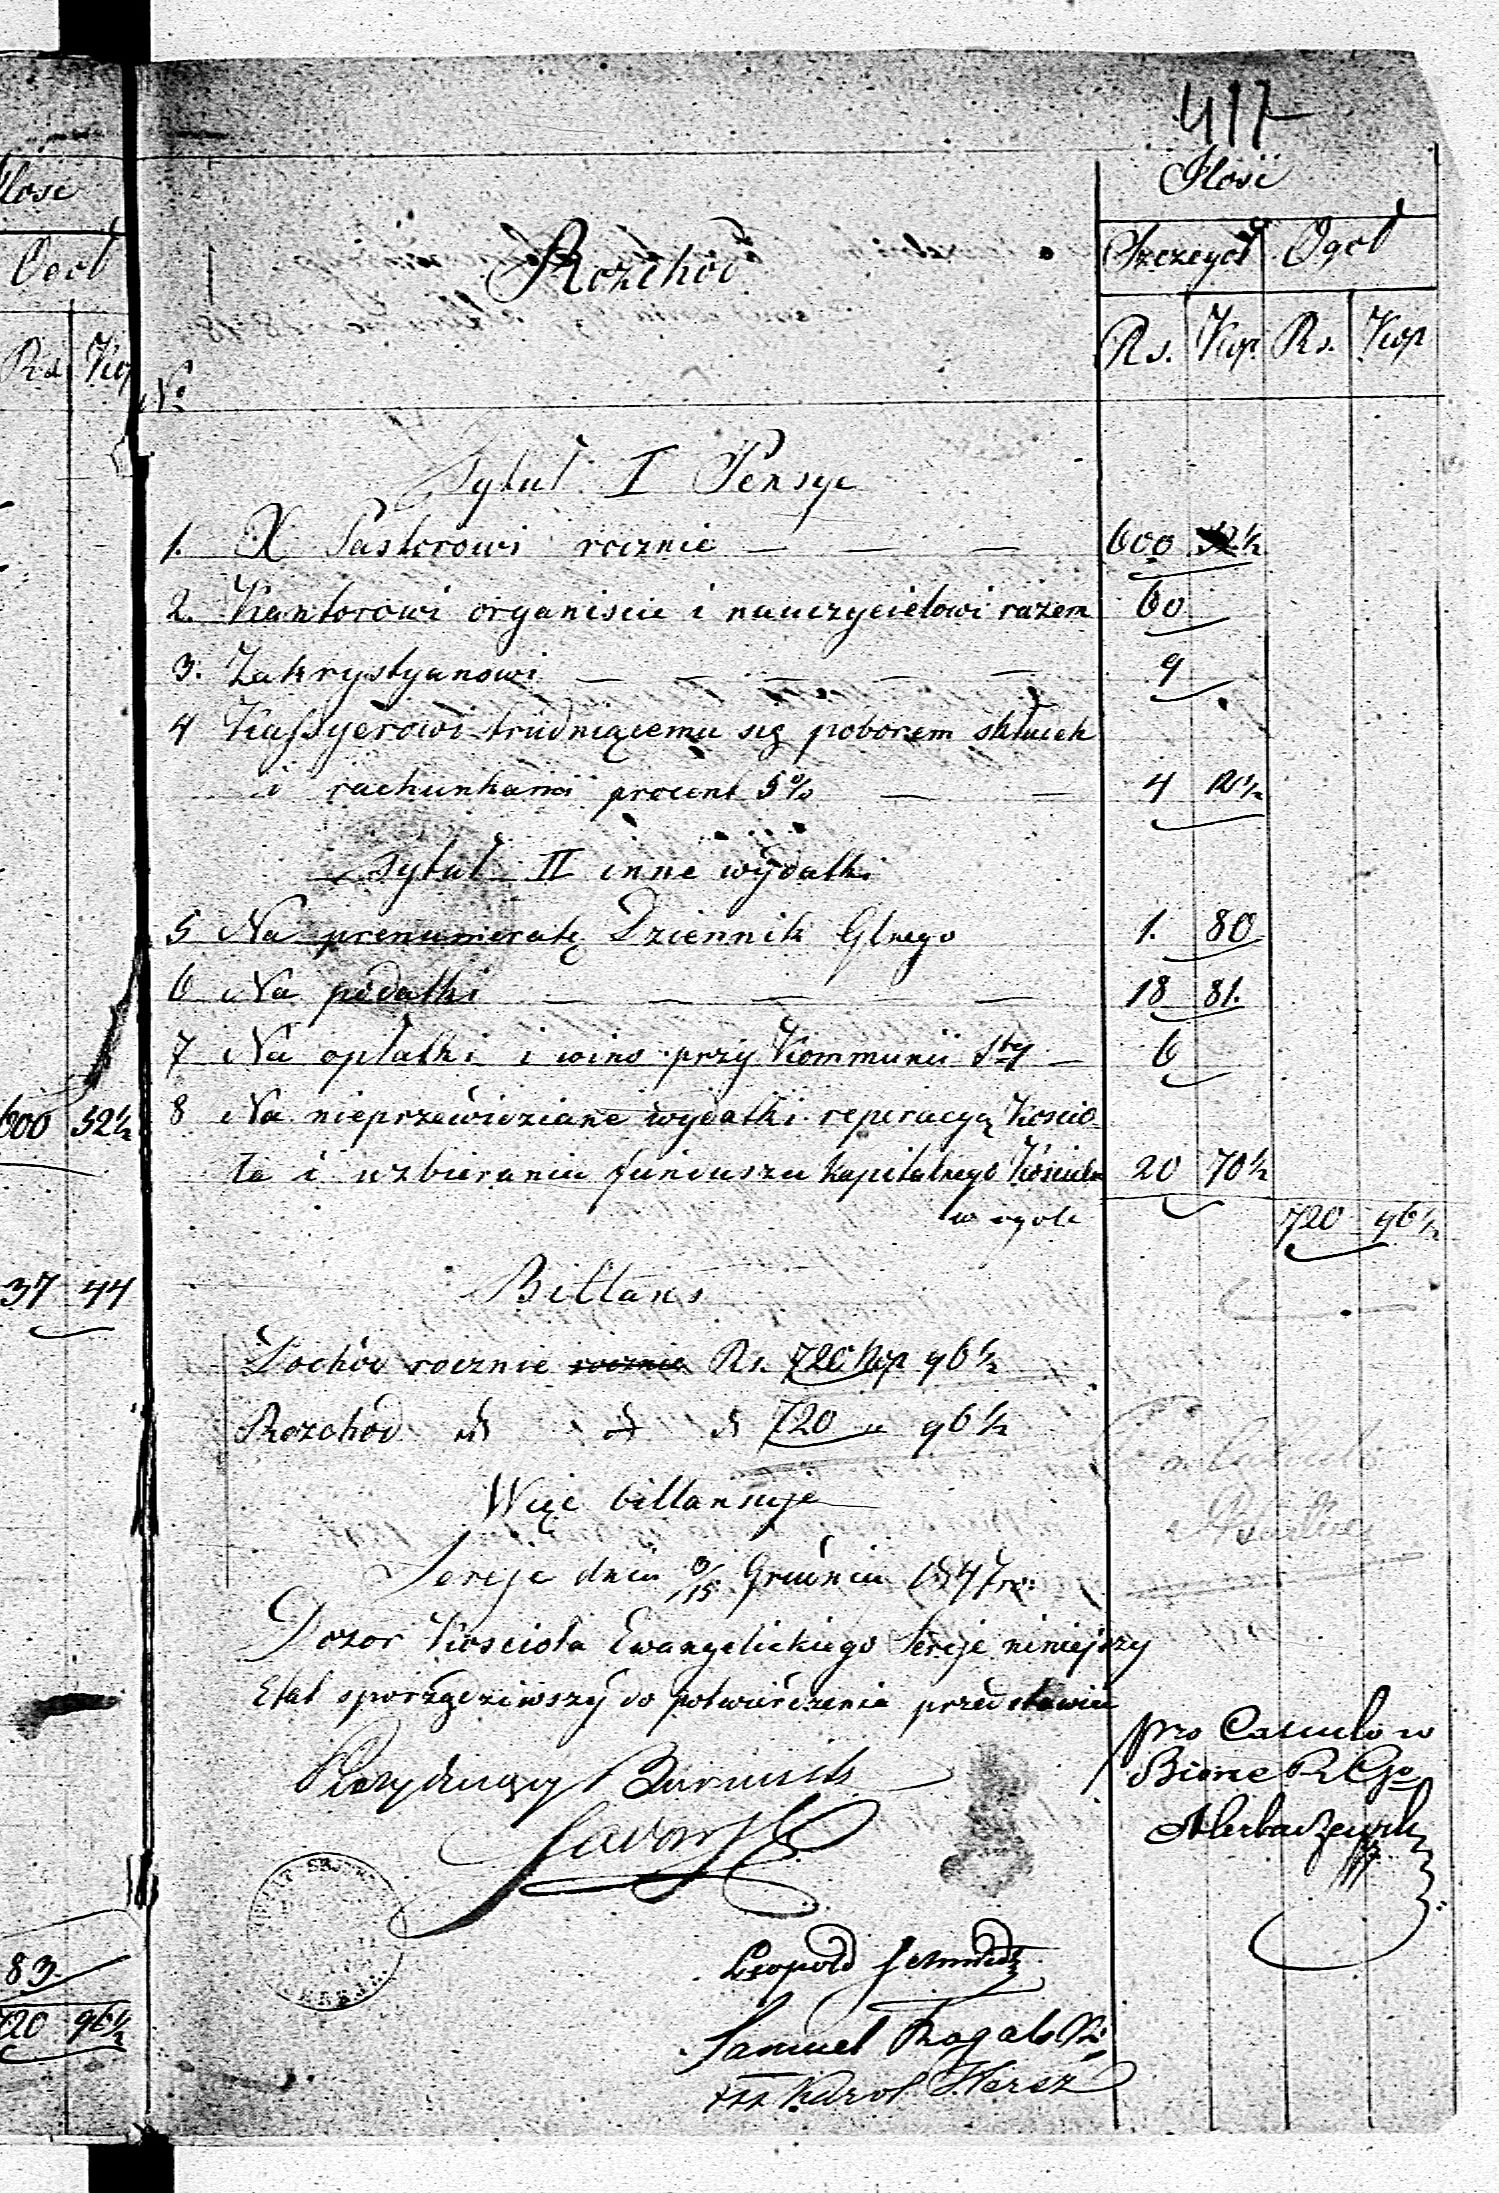 417
Ilość
Szczegół Ogół
Rozchód
Rs. Kop. Rs. Kop
No
Tytuł I Pensye
1. X Pastorowi rocznie — — — 600 52½
2. Kantorowi organiscie i nauczycielowi razem 60
3. Zakrystyanowi — — — — — 9
4 Kassyerowi trudniącemu się poborem składek
i rachunkami procent 5% — — 4 12½
Tytuł II inne wydatki
5 Na prenumeratę Dziennik Glnego 1. 80
6 Na podatki — — — — 18 81.
7 Na opłatki i wino przy Kommunii Stey — 6
8 Na nieprzewidziane wydatki reperacyą Koscio-
ła i uzbierania funduszu kapitalnego Kościoła 20 70½
w ogole 720 96½
Billans
Dochód rocznie rocznie Rs. 720 kop 96½
Rozchód d d d 720 „ 96½
Więc billansuje
Sereje dnia 3/15 Grudnia 1847 r:
Dozor Kościoła Ewangelickiego Sereje niniejszy
Etat sporządziwszy do potwierdzenia przedstawia
Prezydujący
Leopold Schmidt
Samuel Rogalski
xxx Karol Hersz
pro Calculo w
Biorze R Go
Ilosc
Ogół
Rs. Kop
600 52½
37 44
83
720 96½